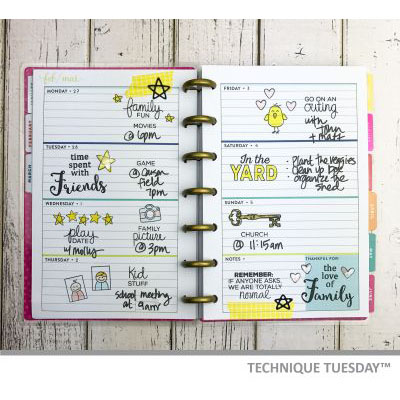 feb mar
MONDAY • 27
family
FUN
MOVIES
@ 6pm
TUESDAY • 28
time
spent
with
Friends
GAME
@ Carson
field
7pm
WEDNESDAY • 1
play
DATE
w/ molly
FAMILY
picture
@ 3pm
THURSDAY • 2
Kid
STUFF
school meeting
at 9am
FEBRUARY
MARCH
FRIDAY • 3
GO ON AN
outing
with
John
+ matt
SATURDAY • 4
In the
YARD
• Plant the veggies
• Clean up pots
organize the
shed
SUNDAY • 5
CHURCH
@ 11:15am
NOTES •
REMEMBER:
IF ANYONE ASKS,
WE ARE TOTALLY
normal
THANKFUL FOR:
the
love
of
Family
TECHNIQUE TUESDAY™